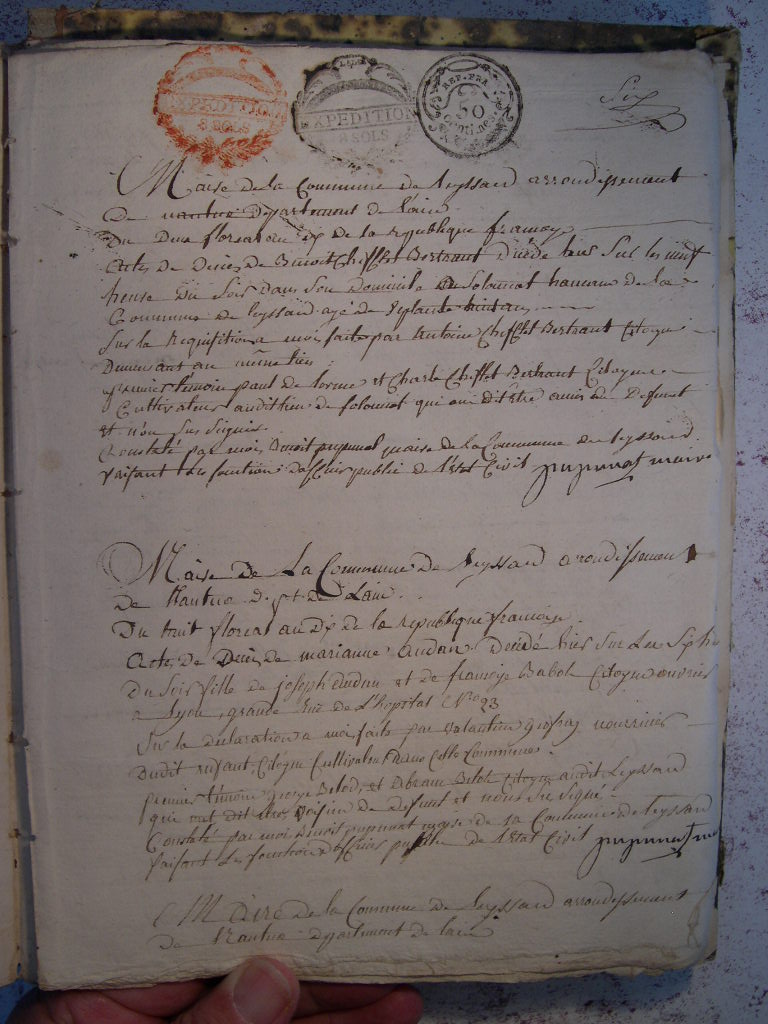 EXPEDITION
8 SOLS
EXPEDITION
8 SOLS
REP. FRA.
50
Centimes
Six
Maire de la Commune de leyssard arrondissement
De nantua Département de l'ain
Du Deux floreal an dix de la republique françoise
Acte de Décès de Benoit Chefflet Bertrant Décédé hier Sur les neuf
heure Du Soir dans Son Domicile de Solomiat hameau de la
Commune de leyssard agé de
Sur la Requisition a moi faite par Antoine Chefflet Bertrant Citoyen
Demeurant au même lieu
premier temoin paul de lorme et Charle Chefflet Bertrant Citoyens
Cultivateurs audit lieu de solomiat qui ont dit être amis du Defunt
et n'on Su Signer
Constaté par moi Benoit pupunat maire de la Commune de leyssard
faisant les fonction d'officier public de l'état Civil pupunat maire
Maire De La Commune De leyssard arrondissement
De Nantua D.pt de L'ain
Du huit floreal an Dix de la republique françoise
Acte de Décès de marianne audan Décédé hier Sur Les Sept
Du Soir fille de joseph audan et de françoise Babol Citoyen ouvrier
a Lyon, grande Rue de L'hopital N.o 93
Sur la declaration a moi faite par Valentin nourricier
Dudit enfant Citoyen Cultivateur Dans Cette Commune
premier témoin George Belod, et Abram Belod Citoyen audit Leyssard
qui ont dit être Voisin de Defunt et n'ont Su Signé
Constaté par moi Benoit pupunat maire de La Commune de leyssard
faisant Les fonction d'officier public de l'état Civil pupunat
Maire de la Commune de leyssard arrondissement
de Nantua département de l'ain